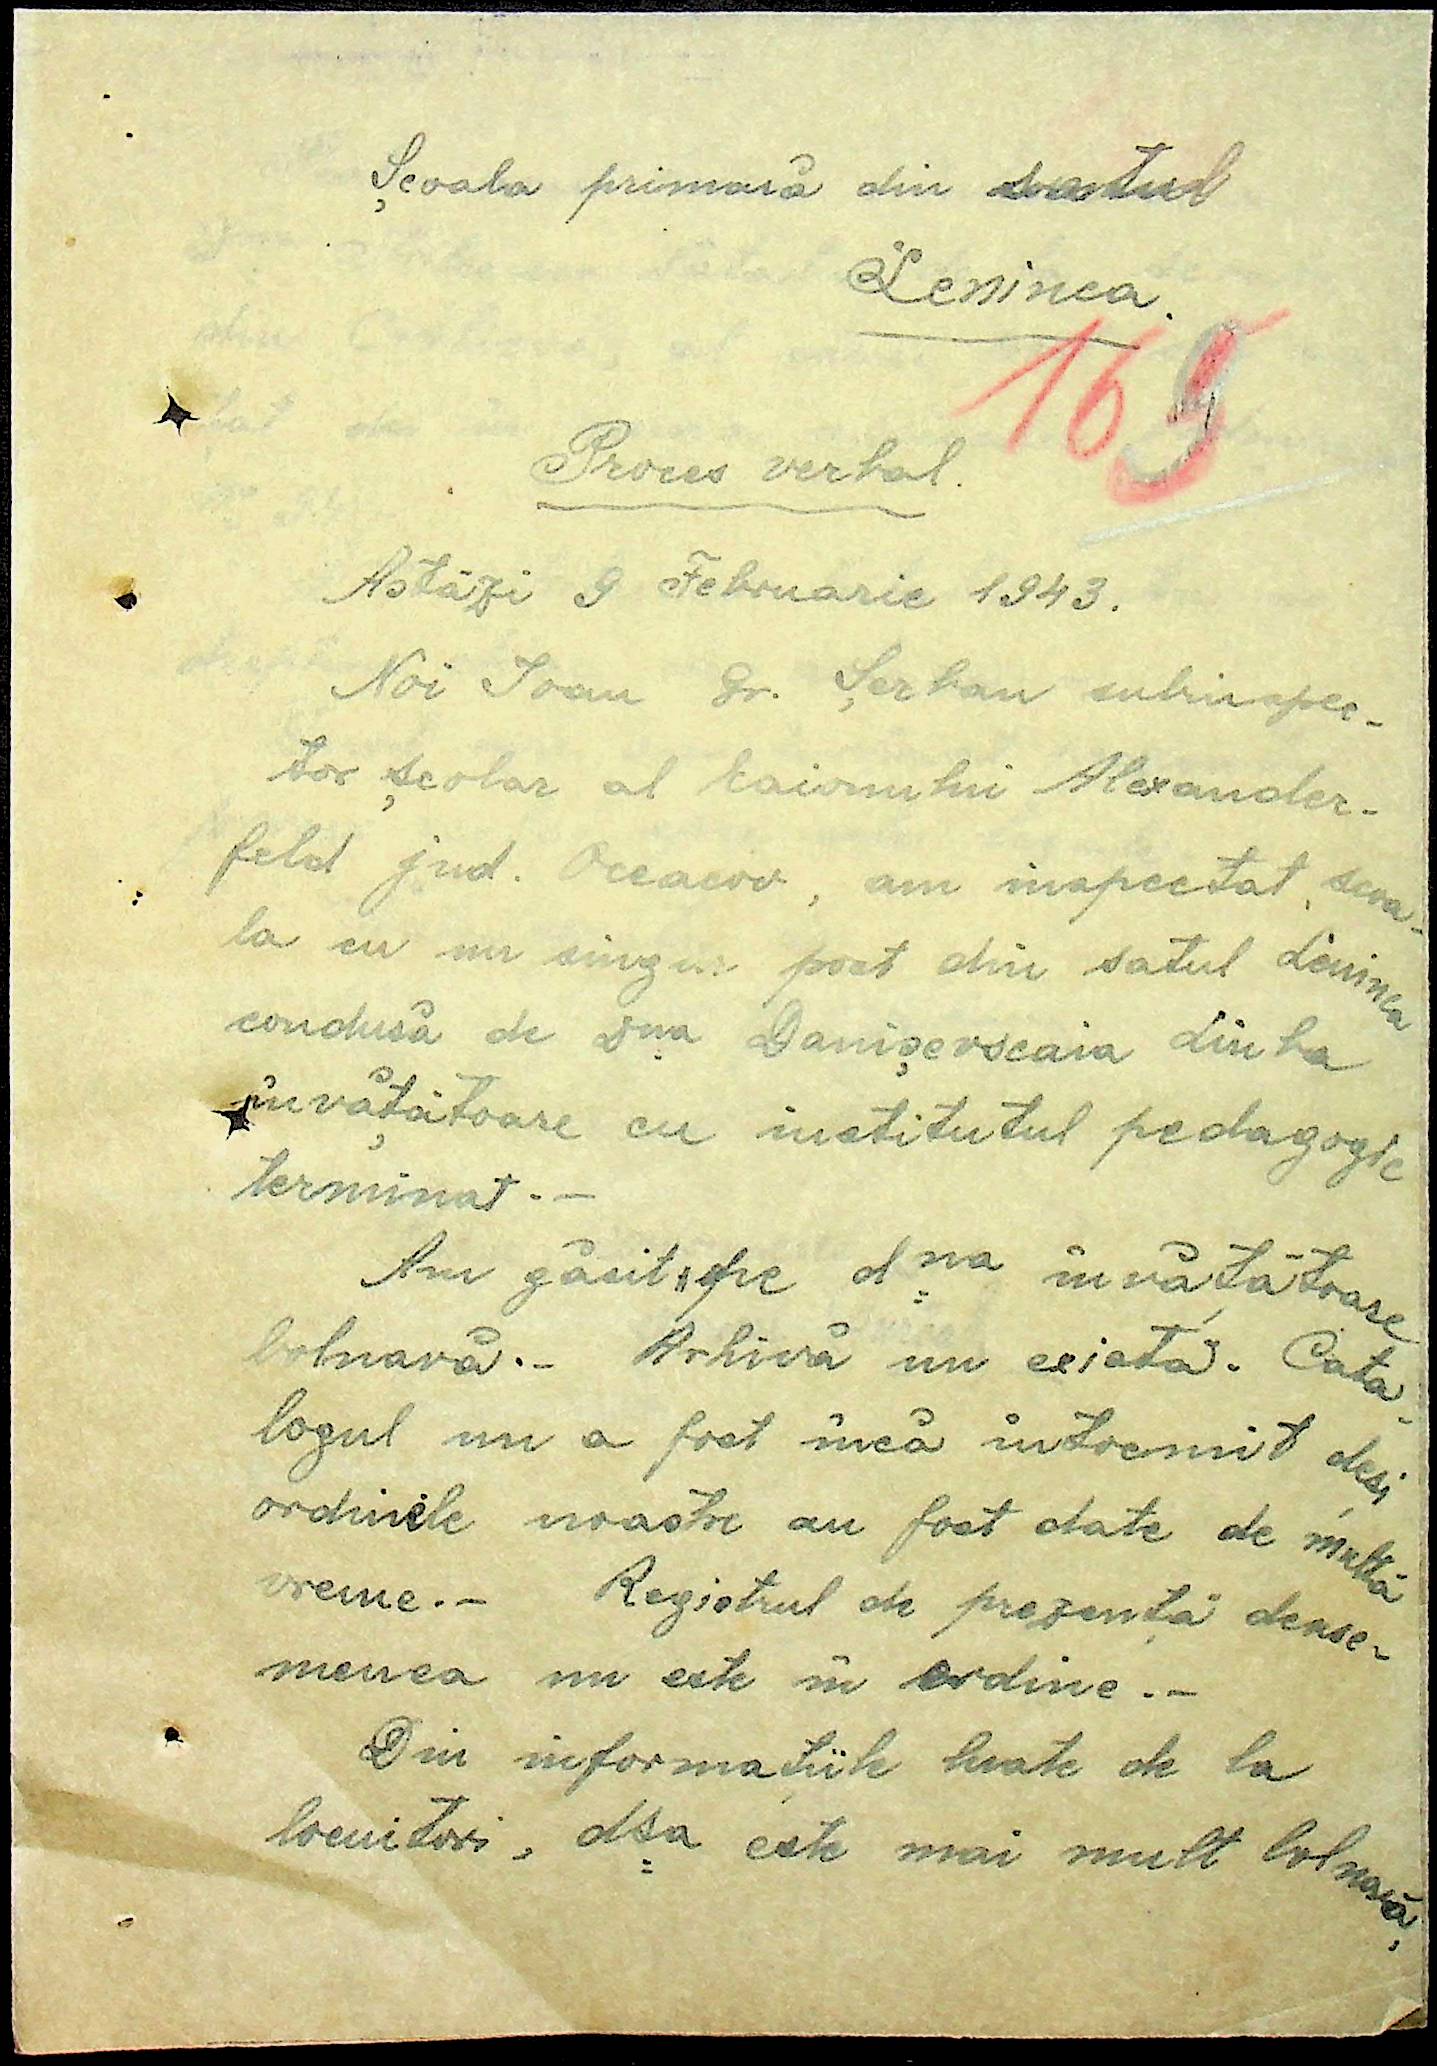 Școala primară din satul
Leninca.
169
Proces verbal.
Astăzi 9 Februarie 1943.
Noi Ioan Gr. Șerban subinspec-
tor școlar al raionului Alexander-
feld jud. Oceacov, am inspectat școa-
la cu un singur post din satul Leninca
condusă de Dna Danișevscaia Liuba
învățătoare cu institutul pedagogic
terminat.-
Am găsit pe dna învățătoare
bolnavă.- Arhivă nu există. Cata-
logul nu a fost încă întocmit deși
ordinele noastre au fost date de multă
vreme.- Registrul de prezență dease-
menea nu este în ordine.-
Din informațiile luate de la
locuitori, dsa este mai mult bolnavă,